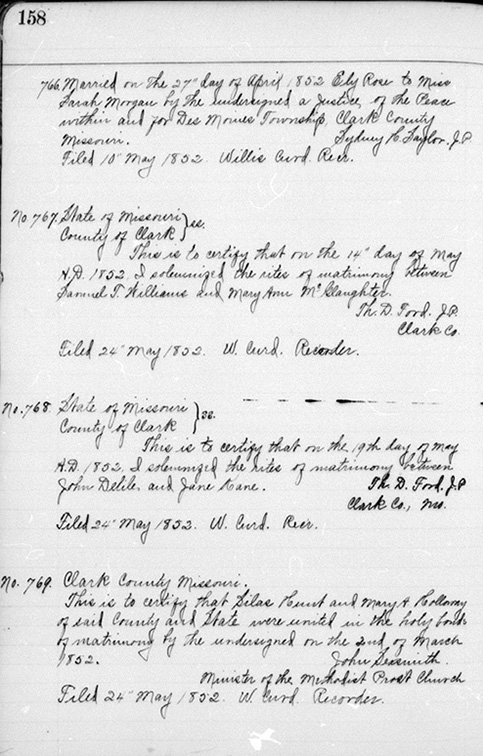 158
766. Married on the 27" day of April 1852 Ely Rose to Miss
Sarah Morgan by the undersigned a Justice of the Peace
within and for Des Moines Township, Clark County
Missouri. Sydney H. Taylor, J.P.
Filed 10" May 1852. Willis Curd. Recr.
No. 767. State of Missouri } ss.
County of Clark
This is to certify that on the 14" day of May
A.D. 1852, I solemnized the rites of matrimony between
Samuel T. Williams and Mary Ann McGlaughter.
Th. D. Ford. J.P.
Clark Co.
Filed 24" May 1852. W. Curd. Recorder.
No. 768. State of Missouri } ss.
County of Clark
This is to certify that on the 19th day of May
A.D. 1852, I solemnized the rites of matrimony between
John Delile, and Jane Kane. Th. D. Ford. J.P.
Clark Co., Mo.
Filed 24" May 1852. W. Curd. Recr.
No. 769. Clark County Missouri.
This is to certify that Silas Hunt and Mary A. Holloway
of said County and State were united in the holy bonds
of matrimony by the undersigned on the 2nd of March
1852. John Sexsmith.
Minister of the Methodist Prost Church
Filed 24" May 1852. W. Curd. Recorder.